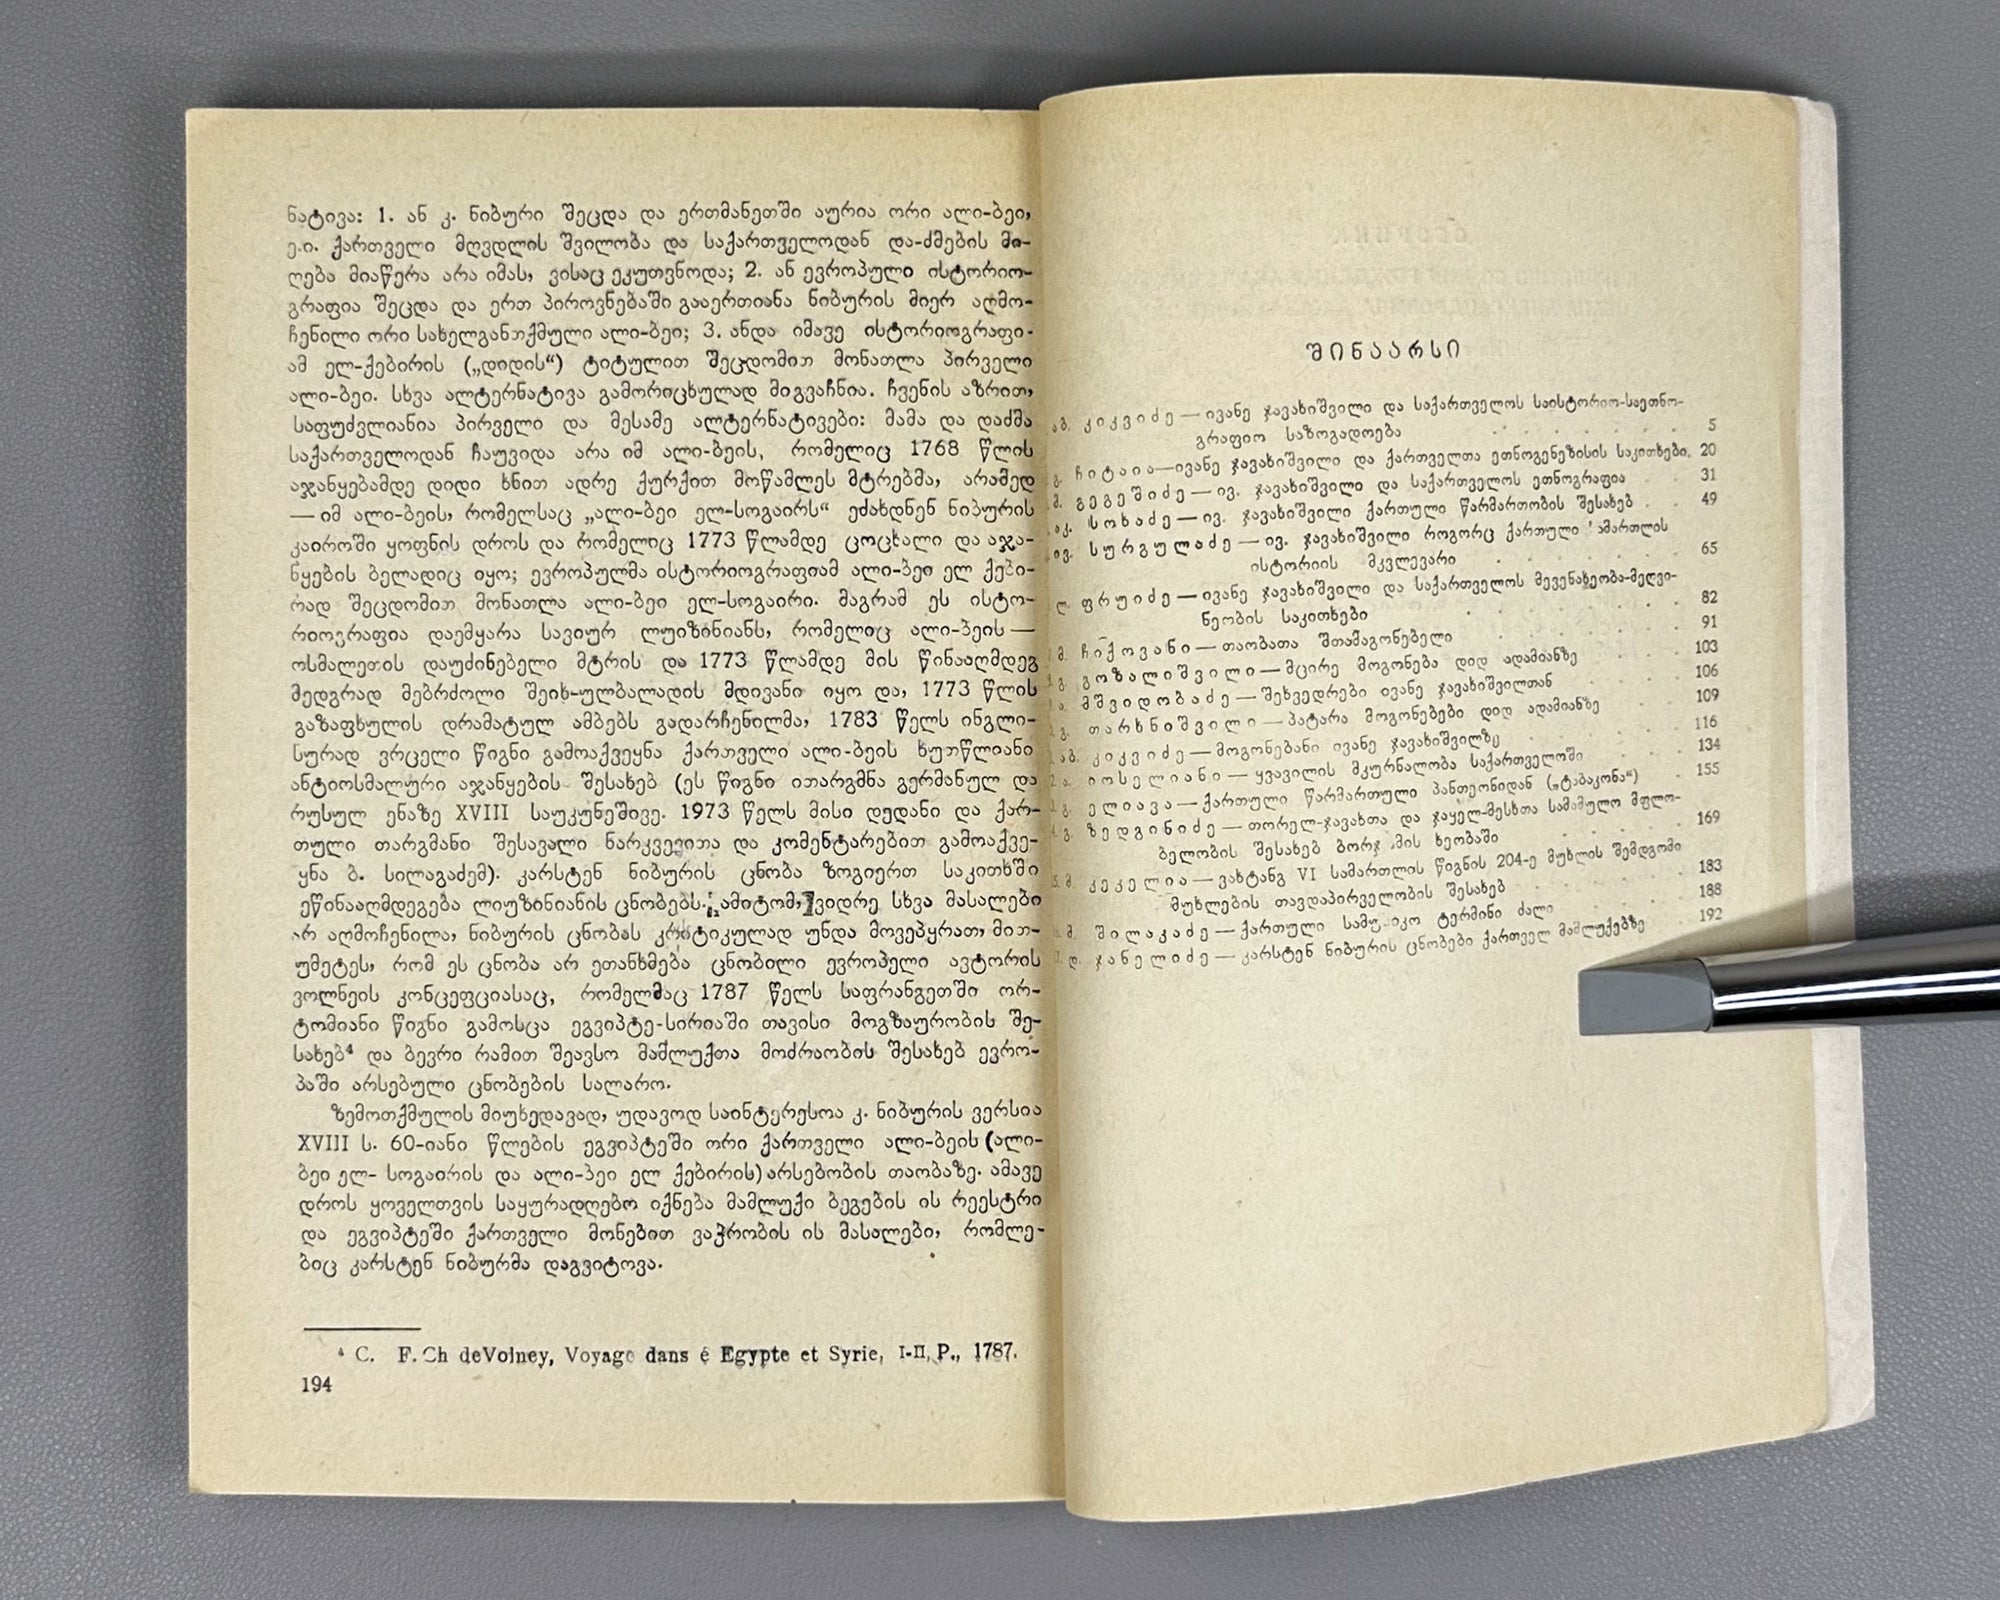 ნატივა: 1. ან კ. ნიბური შეცდა და ერთმანეთში აურია ორი ალი-ბეი,
ე.ი. ქართველი მღვდლის შვილობა და საქართველოდან და-ძმების მი-
ღება მიაწერა არა იმას, ვისაც ეკუთვნოდა; 2. ან ევროპული ისტორიო-
გრაფია შეცდა და ერთ პიროვნებაში გააერთიანა ნიბურის მიერ აღმო-
ჩენილი ორი სახელგანთქმული ალი-ბეი; 3. ანდა იმავე ისტორიოგრაფი-
ამ ელ-ქებირის („დიდის“) ტიტულით შეცდომით მონათლა პირველი
ალი-ბეი. სხვა ალტერნატივა გამორიცხულად მიგვაჩნია. ჩვენის აზრით,
საფუძვლიანია პირველი და მესამე ალტერნატივები: მამა და დაძმა
საქართველოდან ჩაუვიდა არა იმ ალი-ბეის, რომელიც 1768 წლის
აჯანყებამდე დიდი ხნით ადრე ქურქით მოწამლეს მტრებმა, არამედ
— იმ ალი-ბეის, რომელსაც „ალი-ბეი ელ-სოგაირს“ ეძახდნენ ნიბურის
კაიროში ყოფნის დროს და რომელიც 1773 წლამდე ცოცხალი და აჯა-
ნყების ბელადიც იყო; ევროპულმა ისტორიოგრაფიამ ალი-ბეი ელ ქები-
რად შეცდომით მონათლა ალი-ბეი ელ-სოგაირი. მაგრამ ეს ისტო-
რიოგრაფია დაემყარა სავიურ ლუიზინიანს, რომელიც ალი-ბეის —
ოსმალეთის დაუძინებელი მტრის და 1773 წლამდე მის წინააღმდეგ
მედგრად მებრძოლი შეიხ-ულბალადის მდივანი იყო და, 1773 წლის
გაზაფხულის დრამატულ ამბებს გადარჩენილმა, 1783 წელს ინგლი-
სურად ვრცელი წიგნი გამოაქვეყნა ქართველი ალი-ბეის ხუთწლიანი
ანტიოსმალური აჯანყების შესახებ (ეს წიგნი ითარგმნა გერმანულ და
რუსულ ენაზე XVIII საუკუნეშივე. 1973 წელს მისი დედანი და ქარ-
თული თარგმანი შესავალი ნარკვევითა და კომენტარებით გამოაქვე-
ყნა ბ. სილაგაძემ). კარსტენ ნიბურის ცნობა ზოგიერთ საკითხში
ეწინააღმდეგება ლიუზინიანის ცნობებს. ამიტომ, ვიდრე სხვა მასალები
არ აღმოჩენილა, ნიბურის ცნობას კრიტიკულად უნდა მოვეპყრათ, მით-
უმეტეს, რომ ეს ცნობა არ ეთანხმება ცნობილი ევროპელი ავტორის
ვოლნეის კონცეფციასაც, რომელმაც 1787 წელს საფრანგეთში ორ-
ტომიანი წიგნი გამოსცა ეგვიპტე-სირიაში თავისი მოგზაურობის შე-
სახებ⁴ და ბევრი რამით შეავსო მამლუქთა მოძრაობის შესახებ ევრო-
პაში არსებული ცნობების სალარო.
ზემოთქმულის მიუხედავად, უდავოდ საინტერესოა კ. ნიბურის ვერსია
XVIII ს. 60-იანი წლების ეგვიპტეში ორი ქართველი ალი-ბეის (ალი-
ბეი ელ- სოგაირის და ალი-ბეი ელ ქებირის) არსებობის თაობაზე. ამავე
დროს ყოველთვის საყურადღებო იქნება მამლუქი ბეგების ის რეესტრი
და ეგვიპტეში ქართველი მონებით ვაჭრობის ის მასალები, რომლე-
ბიც კარსტენ ნიბურმა დაგვიტოვა.
⁴ C. F. Ch deVolney, Voyage dans é Egypte et Syrie, I-II, P., 1787.
194
შინაარსი
აბ. კიკვიძე — ივანე ჯავახიშვილი და საქართველოს საისტორიო-საეთნო-
გრაფიო საზოგადოება . . . . . . . 5
გ. ჩიტაია — ივანე ჯავახიშვილი და ქართველთა ეთნოგენეზისის საკითხები. 20
მ. გეგეშიძე — ივ. ჯავახიშვილი და საქართველოს ეთნოგრაფია . . 31
აკ. სოხაძე — ივ. ჯავახიშვილი ქართული წარმართობის შესახებ . . 49
ივ. სურგულაძე — ივ. ჯავახიშვილი როგორც ქართული ამართლის
ისტორიის მკვლევარი . . . . . 65
ლ. ფრუიძე — ივანე ჯავახიშვილი და საქართველოს მევენახეობა-მეღვი-
ნეობის საკითხები . . . . . . 82
მ. ჩიქოვანი — თაობათა შთამაგონებელი . . . . . 91
გ. გოზალიშვილი — მცირე მოგონება დიდ ადამიანზე . . . 103
ა. მშვიდობაძე — შეხვედრები ივანე ჯავახიშვილთან . . . 106
გ. თარხნიშვილი — პატარა მოგონებები დიდ ადამიანზე . . . 109
აბ. კიკვიძე — მოგონებანი ივანე ჯავახიშვილზე . . . . 116
ა. იოსელიანი — ყვავილის მკურნალობა საქართველოში . . . 134
გ. ელიავა — ქართული წარმართული პანთეონიდან („ტაბაკონა“) . 155
გ. ზედგინიძე — თორელ-ჯავახთა და ჯაყელ-მესხთა სამამულო მფლო-
ბელობის შესახებ ბორჯ მის ხეობაში . . . . 169
მ. კეკელია — ვახტანგ VI სამართლის წიგნის 204-ე მუხლის შემდგომი
მუხლების თავდაპირველობის შესახებ . . . . 183
მ. შილაკაძე — ქართული სამუსიკო ტერმინი ძალი . . . . 188
დ. ჯანელიძე — კარსტენ ნიბურის ცნობები ქართველ მამლუქებზე . . 192